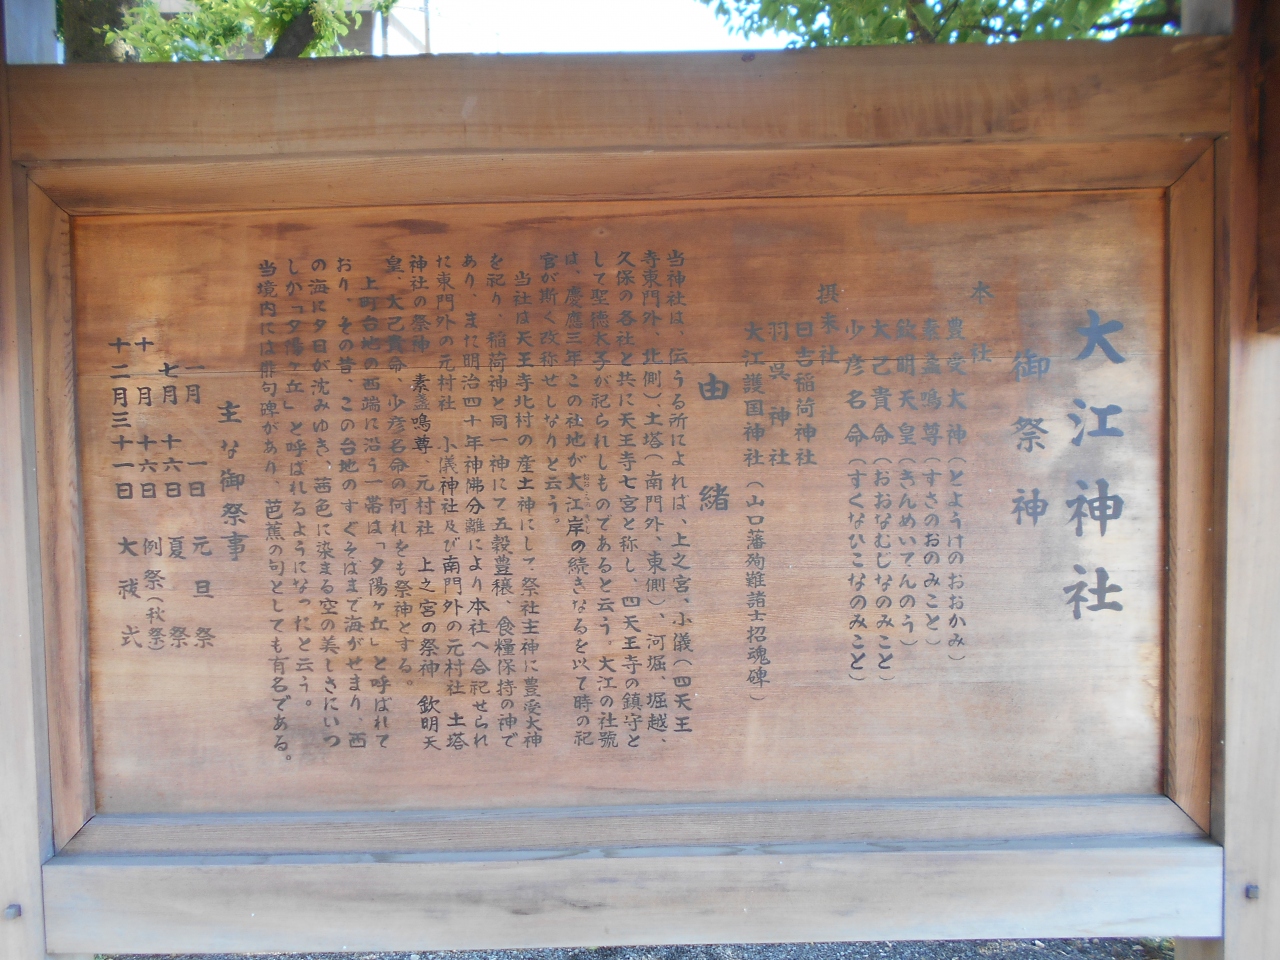 大江神社
御祭神
本社
豊受大神（とようけのおおかみ）
素盞鳴尊（すさのおのみこと）
欽明天皇（きんめいてんのう）
大己貴命（おおなむじなのみこと）
少彦名命（すくなひこなのみこと）
摂末社
日吉稲荷神社
羽呉神社
大江護国神社（山口藩殉難諸士招魂碑）
由緒
当神社は、伝うる所によれば、上之宮、小儀（四天王
寺東門外、北側）、土塔（南門外、東側）、河堀、堀越、
久保の各社と共に天王寺七宮と称し、四天王寺の鎮守と
して聖徳太子が祀られしものであると云う。大江の社號
は、慶應三年この社地が大江岸の続きなるを以て時の祀
官が斯く改称せしなりと云う。
当社は天王寺北村の産土神にして祭社主神に豊受大神
を祀り、稲荷神と同一神にて五穀豊穣、食糧保持の神で
あり、また明治四十年神佛分離により本社へ合祀せられ
た東門外の元村社 小儀神社及び南門外の元村社 土塔
神社の祭神 素盞鳴尊 元村社 上之宮の祭神 欽明天
皇、大己貴命、少彦名命の何れをも祭神とする。
上町台地の西端に沿う一帯は「夕陽ヶ丘」と呼ばれて
おり、その昔、この台地のすぐそばまで海がせまり、西
の海に夕日が沈みゆき、茜色に染まる空の美しさにいつ
しか「夕陽ヶ丘」と呼ばれるようになったと云う。
当境内には俳句碑があり、芭蕉の句としても有名である。
主な御祭事
一月 一日 元旦祭
七月 十六日 夏祭
十月 十六日 例祭（秋祭）
十二月三十一日 大祓式